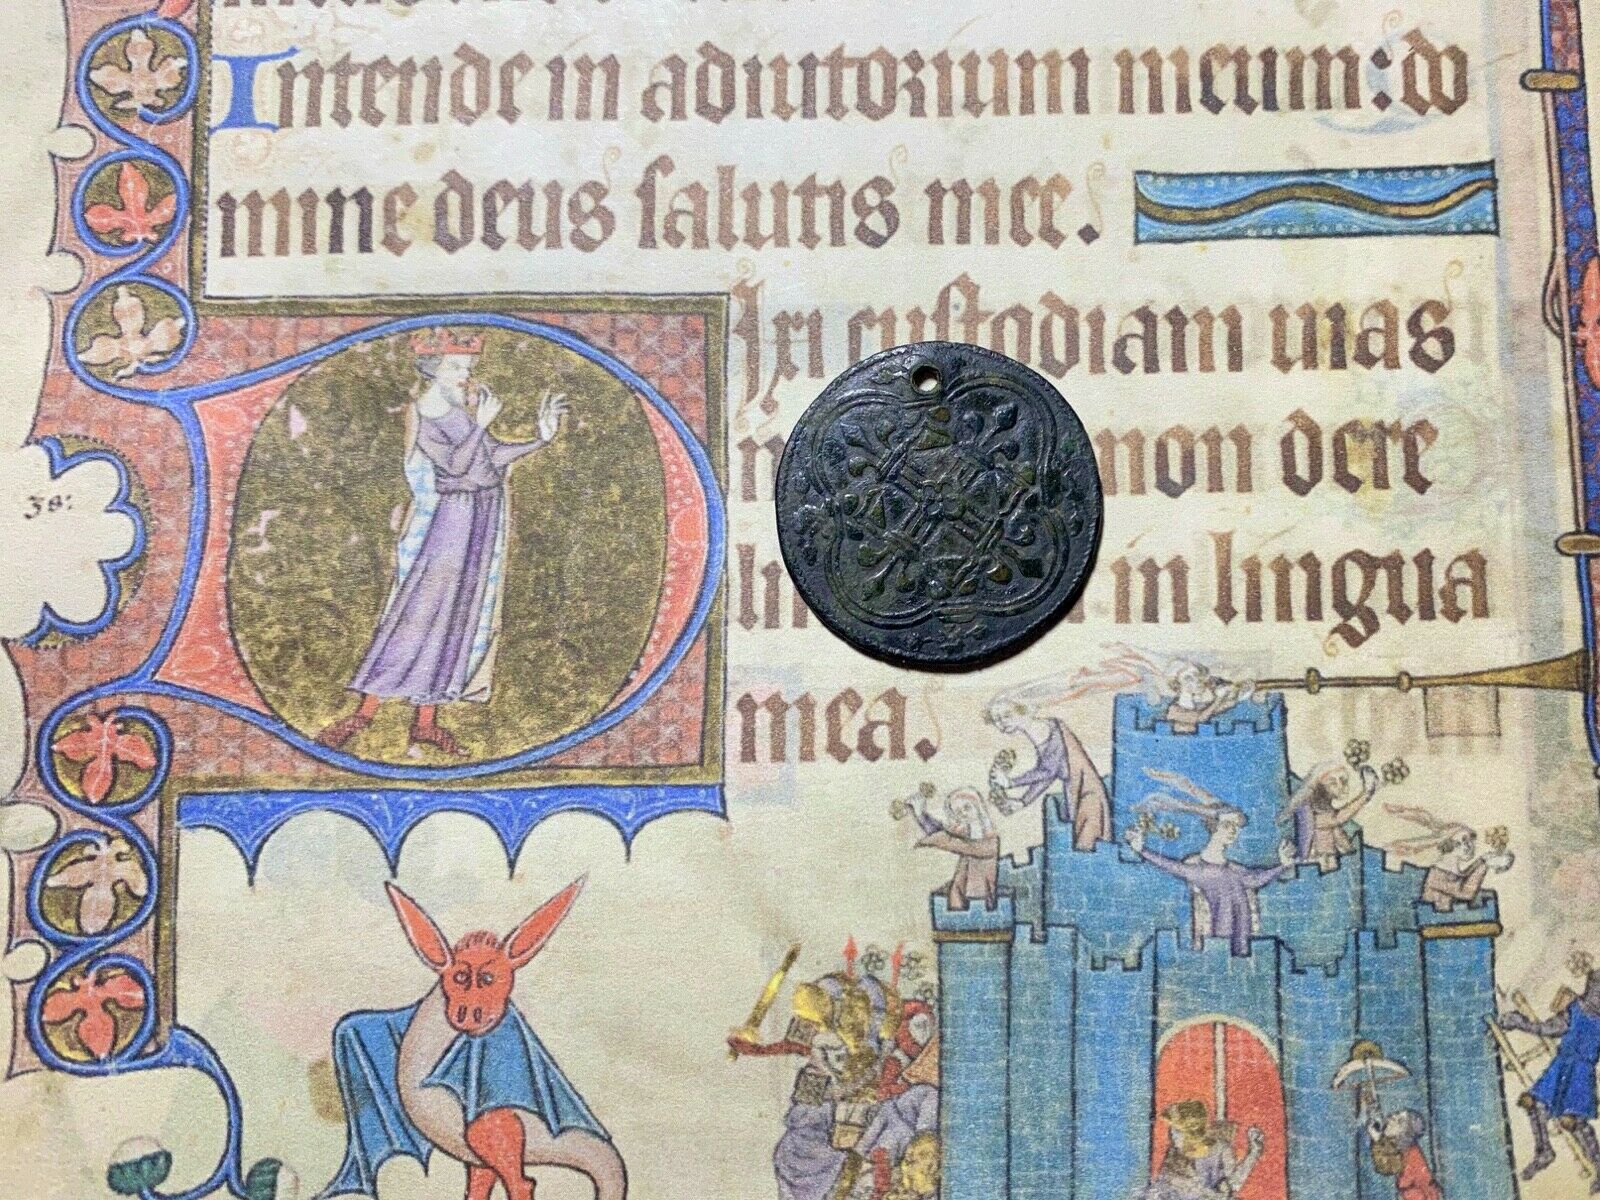 Intende in adiutorium meum: do
mine deus salutis mee.
Dixi custodiam uias
non dere
li in lingua
mea.
38: